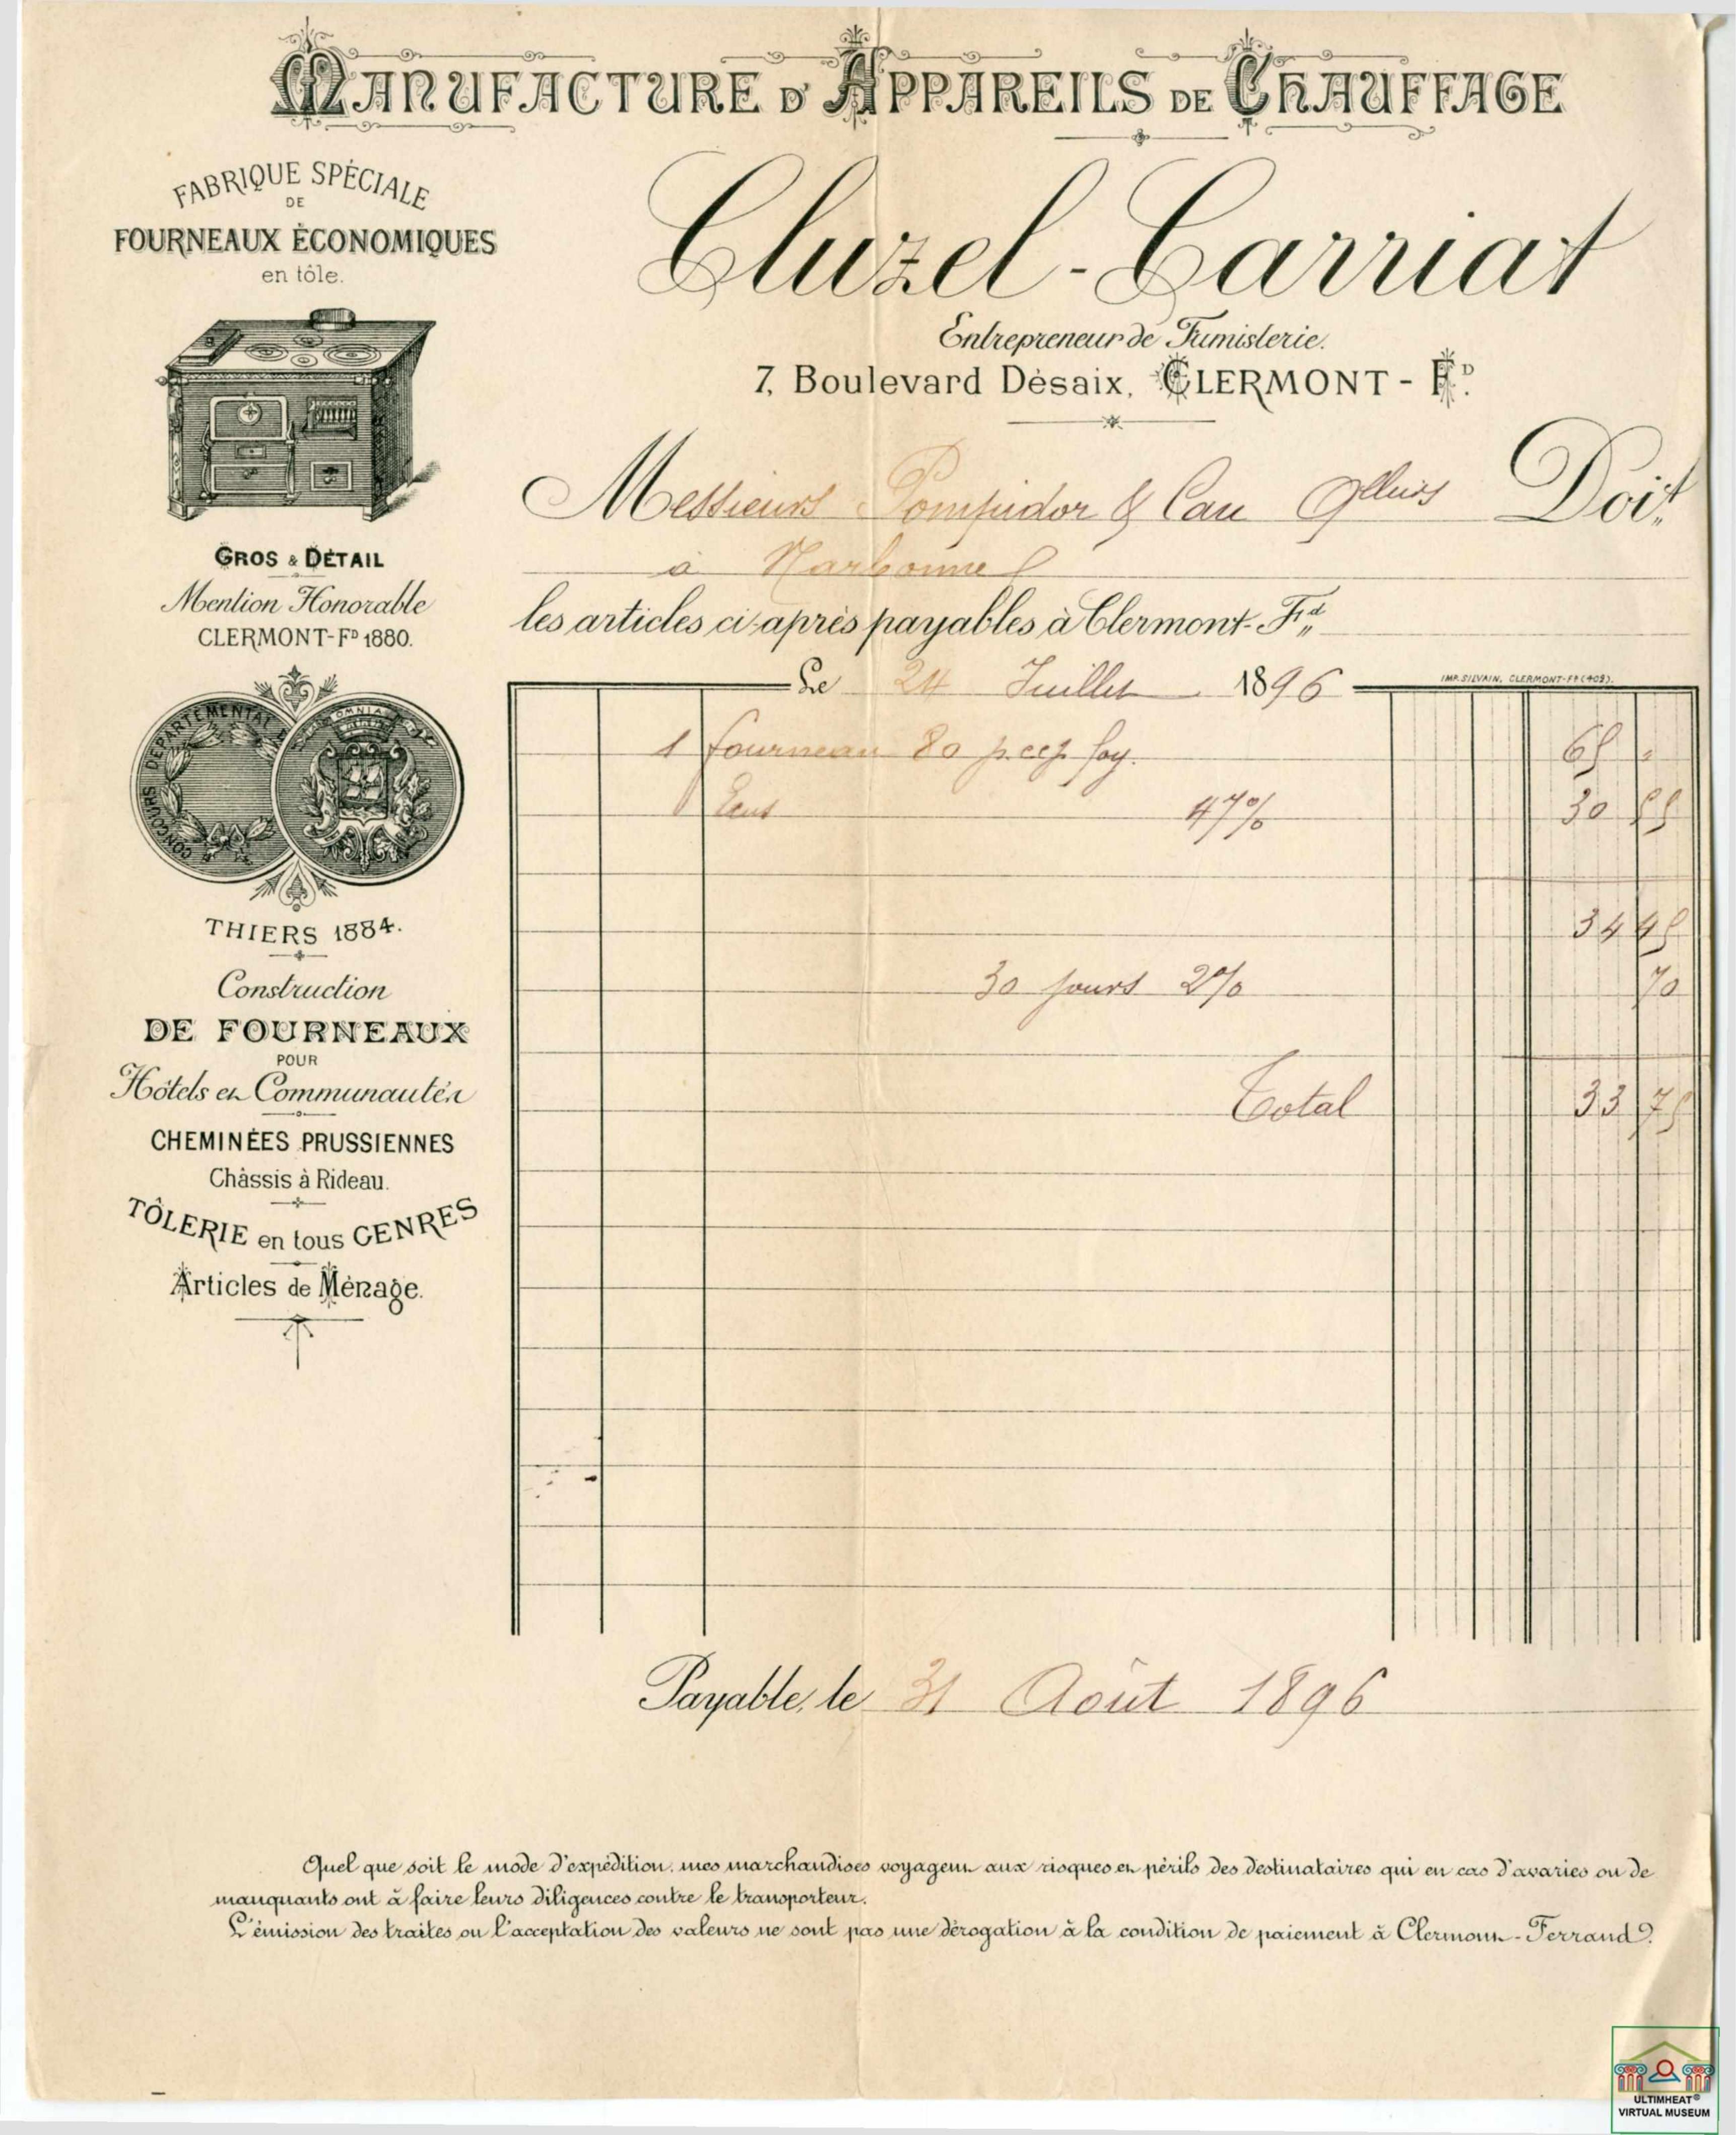 MANUFACTURE D'APPAREILS DE CHAUFFAGE
FABRIQUE SPÉCIALE
DE
FOURNEAUX ÉCONOMIQUES
en tôle.
GROS & DÉTAIL
Mention Honorable
CLERMONT-FD 1880.
CONCOURS DÉPARTEMENTAL
OMNIA
THIERS 1884.
Construction
DE FOURNEAUX
POUR
Hôtels et Communautés
CHEMINÉES PRUSSIENNES
Châssis à Rideau.
TÔLERIE en tous GENRES
Articles de Ménage.
Cluzel-Carriat
Entrepreneur de Fumisterie.
7, Boulevard Desaix, CLERMONT-FD.
Messieurs Pompidor & Cau Doit,
à Narbonne
les articles ci-après payables à Clermont-Fd
Le 24 Juillet 1896
IMP. SILVAIN, CLERMONT-FD (402).
1 fourneau 80 foy. 65 "
47% 30 55
34 45
30 jours 2% 70
Total 33 75
Payable, le 31 Août 1896
Quel que soit le mode d'expédition, mes marchandises voyagent aux risques et périls des destinataires qui en cas d'avaries ou de
manquants ont à faire leurs diligences contre le transporteur.
L'émission des traites ou l'acceptation des valeurs ne sont pas une dérogation à la condition de paiement à Clermont-Ferrand.
ULTIMHEAT®
VIRTUAL MUSEUM